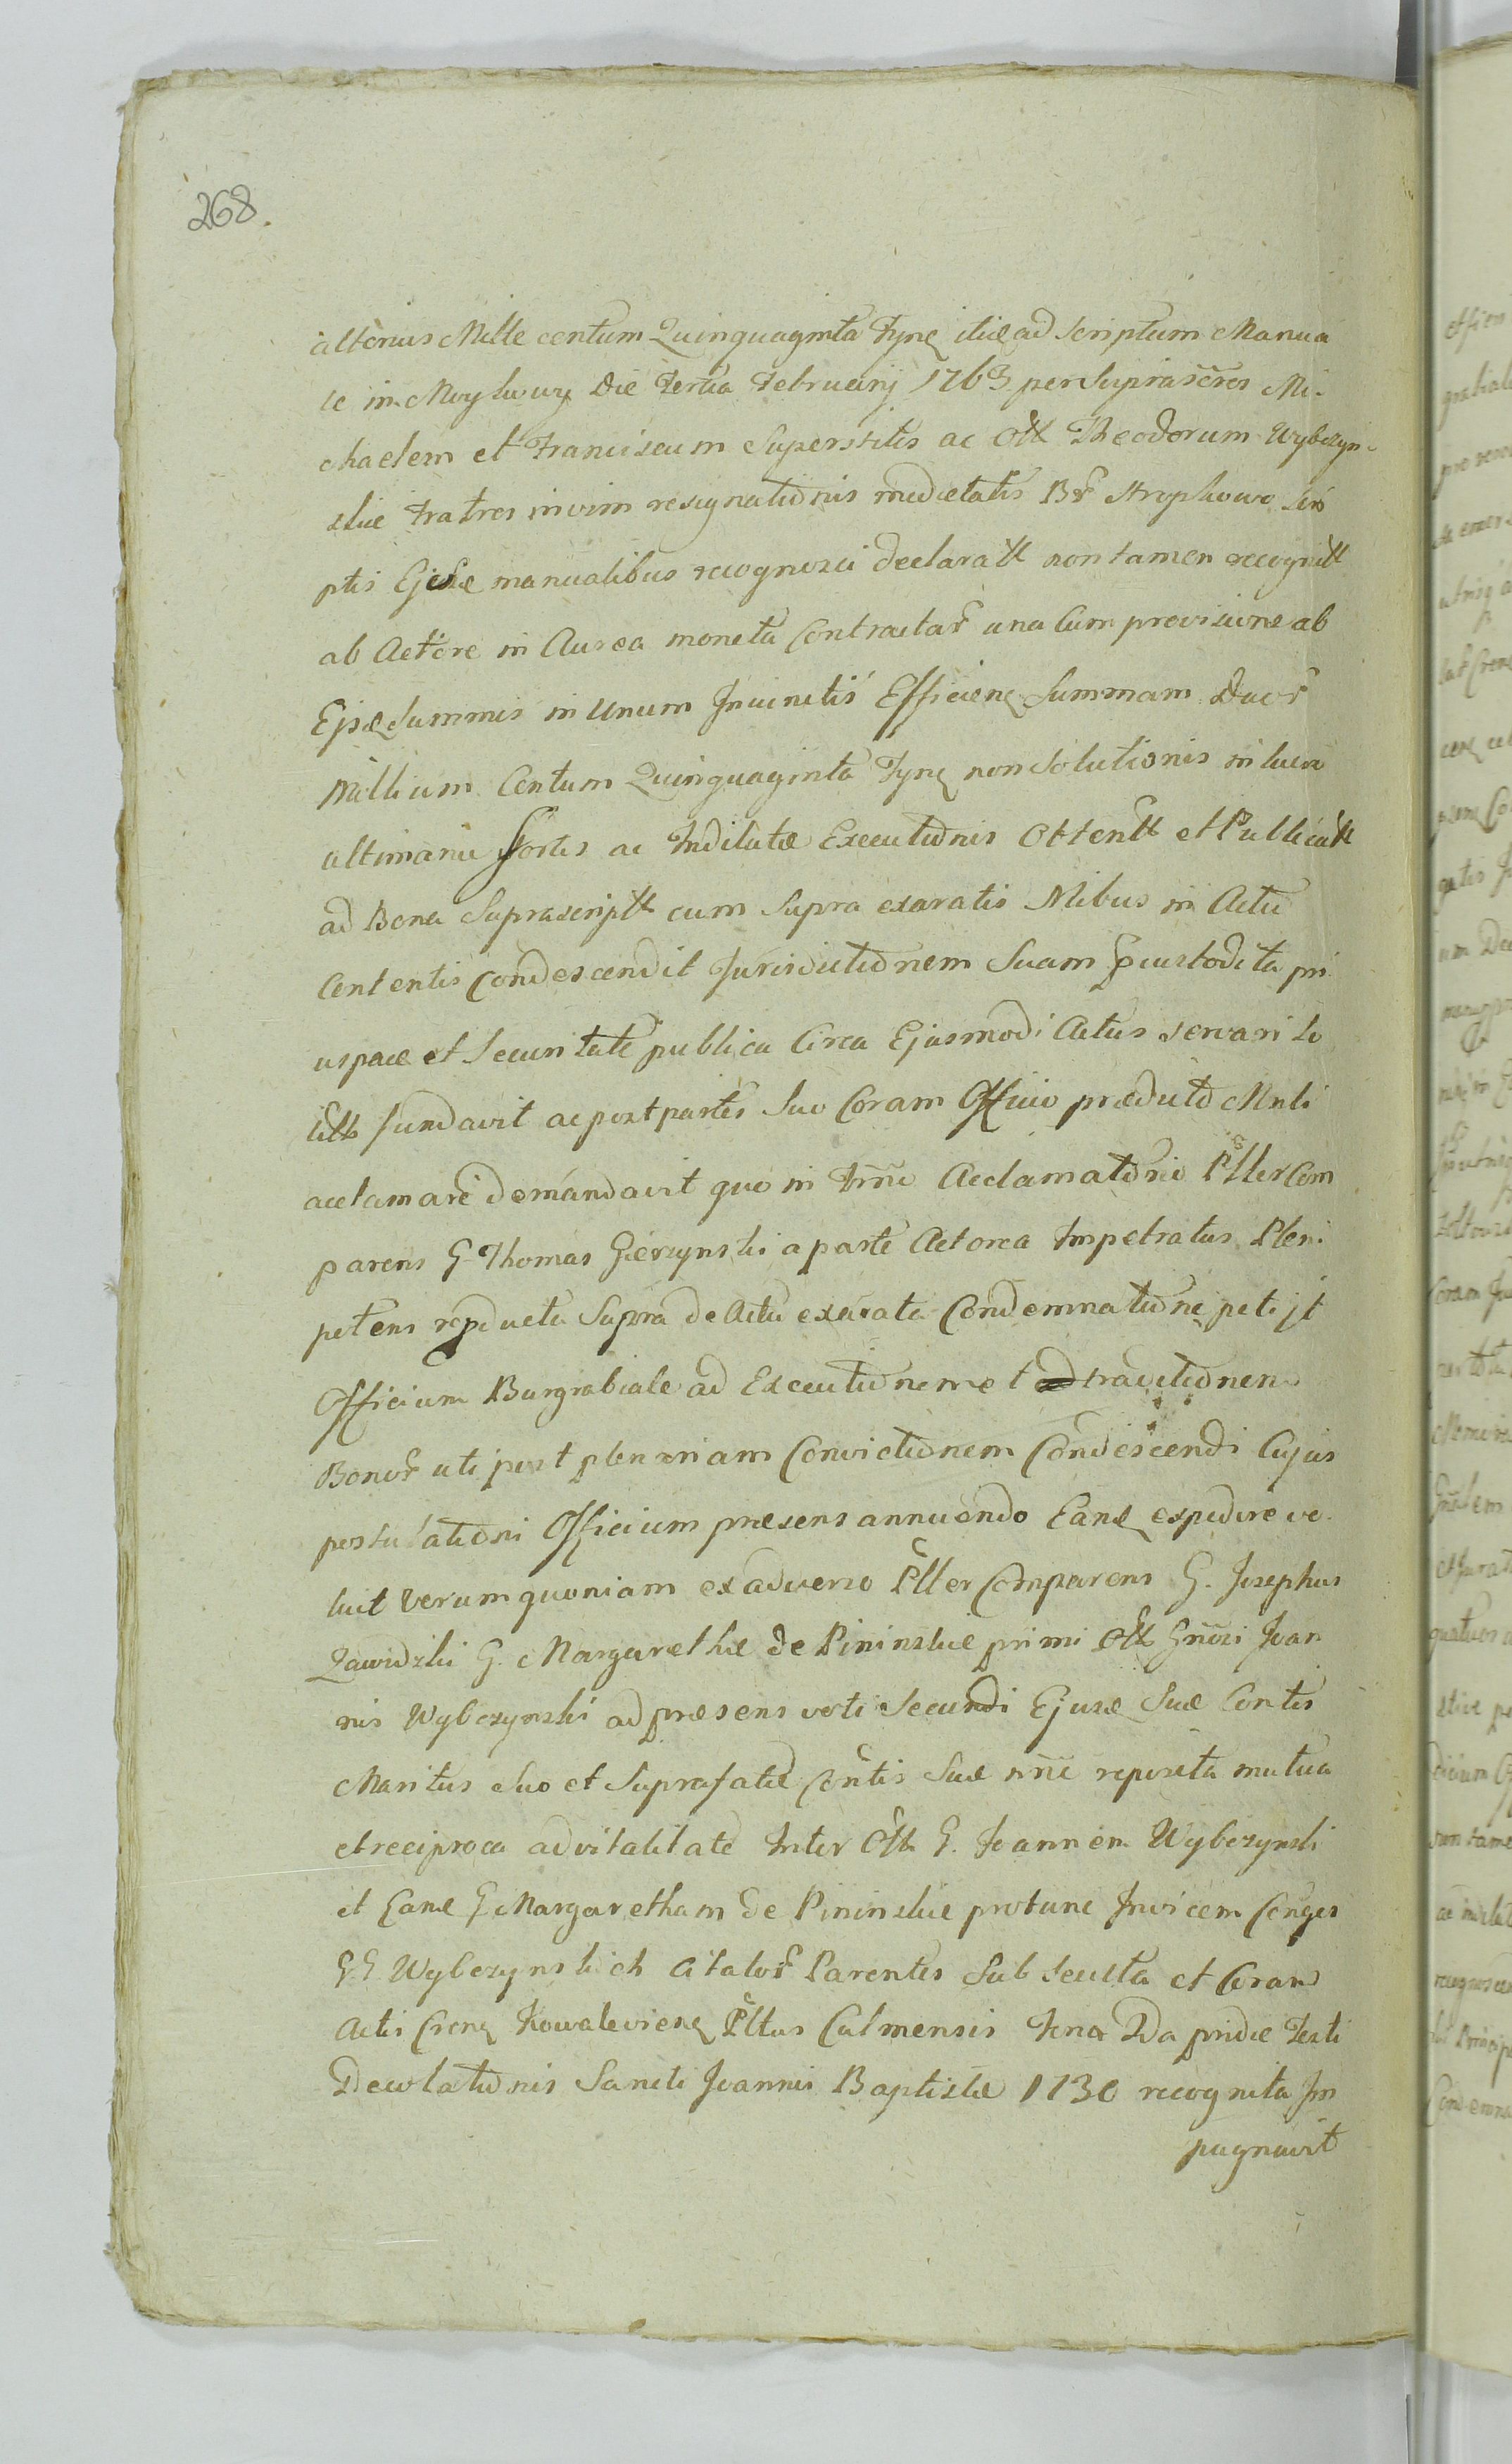 268.
alterius Mille centum Quinquaginta Tynę itidē ad Scriptum Manua
le in Mgowy Die Tertia Februarij 1763 per Supraścros Mi-
chaelem et Franciscum Superstites ac Ott Theodorum Wybczyn-
skie Fratres in vim resignationis medietatis Br Stryphowo Scri
ptis Ejusd manualibus recognosci declaratt non tamen recognitt
ab Actore in Aurea moneta Contractar una Cum provisione ab
Ejsd Summis in Unum Juinctis Efficienę Summam Duor
Millium Centum Quinquaginta Tynę non Solutionis in lucro
ultimarie Sortis ac Indilatæ Executionis Obtentt et Publicatt
ad Bona Suprascriptt cum Supra exaratis Mibus in Actu
Contentis Condescendit Jurisdictionem Suam pcustodita pri
us pace et Securitate publica Circa Ejusmodi Actus servari So
litt fundavit ac post partes Suo Coram Officio præducto Mnli
acclamare demandavit quo in Trno Acclamationis Plter Com
parens G. Thomas Gierzynski a parte Actorea Impetratus Pleni
petens repducta Supra de Actu exarata Condemnatione petijt
Officium Burgrabiale ad Executionem et traditionem
Bonor uti post plenariam Convictionem Condescendi Cujus
postulationi Officium præsens annuendo Eand expedire vo-
luit Verum quoniam ex adverso Plter Comparens G. Josephus
Zawidzki G. Margarethæ de Pininskie primi Ott Gnosi Joan
nis Wybczynski ad præsens voti Secundi Ejusd Suæ Contis
Maritus Suo et Suprafatæ Contis Suæ nne reposita mutua
et reciproca advitalitate Inter Ott G. Joannem Wybczynski
et Eand G. Margaretham de Pininskie protunc Invicem Conges
G G Wybczynskich Citator Parentes Subsecuta et Coram
Actis Crenę Kowalevienę Pltus Culmensis Fena 2da pridie Festi
Decolationis Sancti Joannis Baptistæ 1730 recognita Im
pugnavit